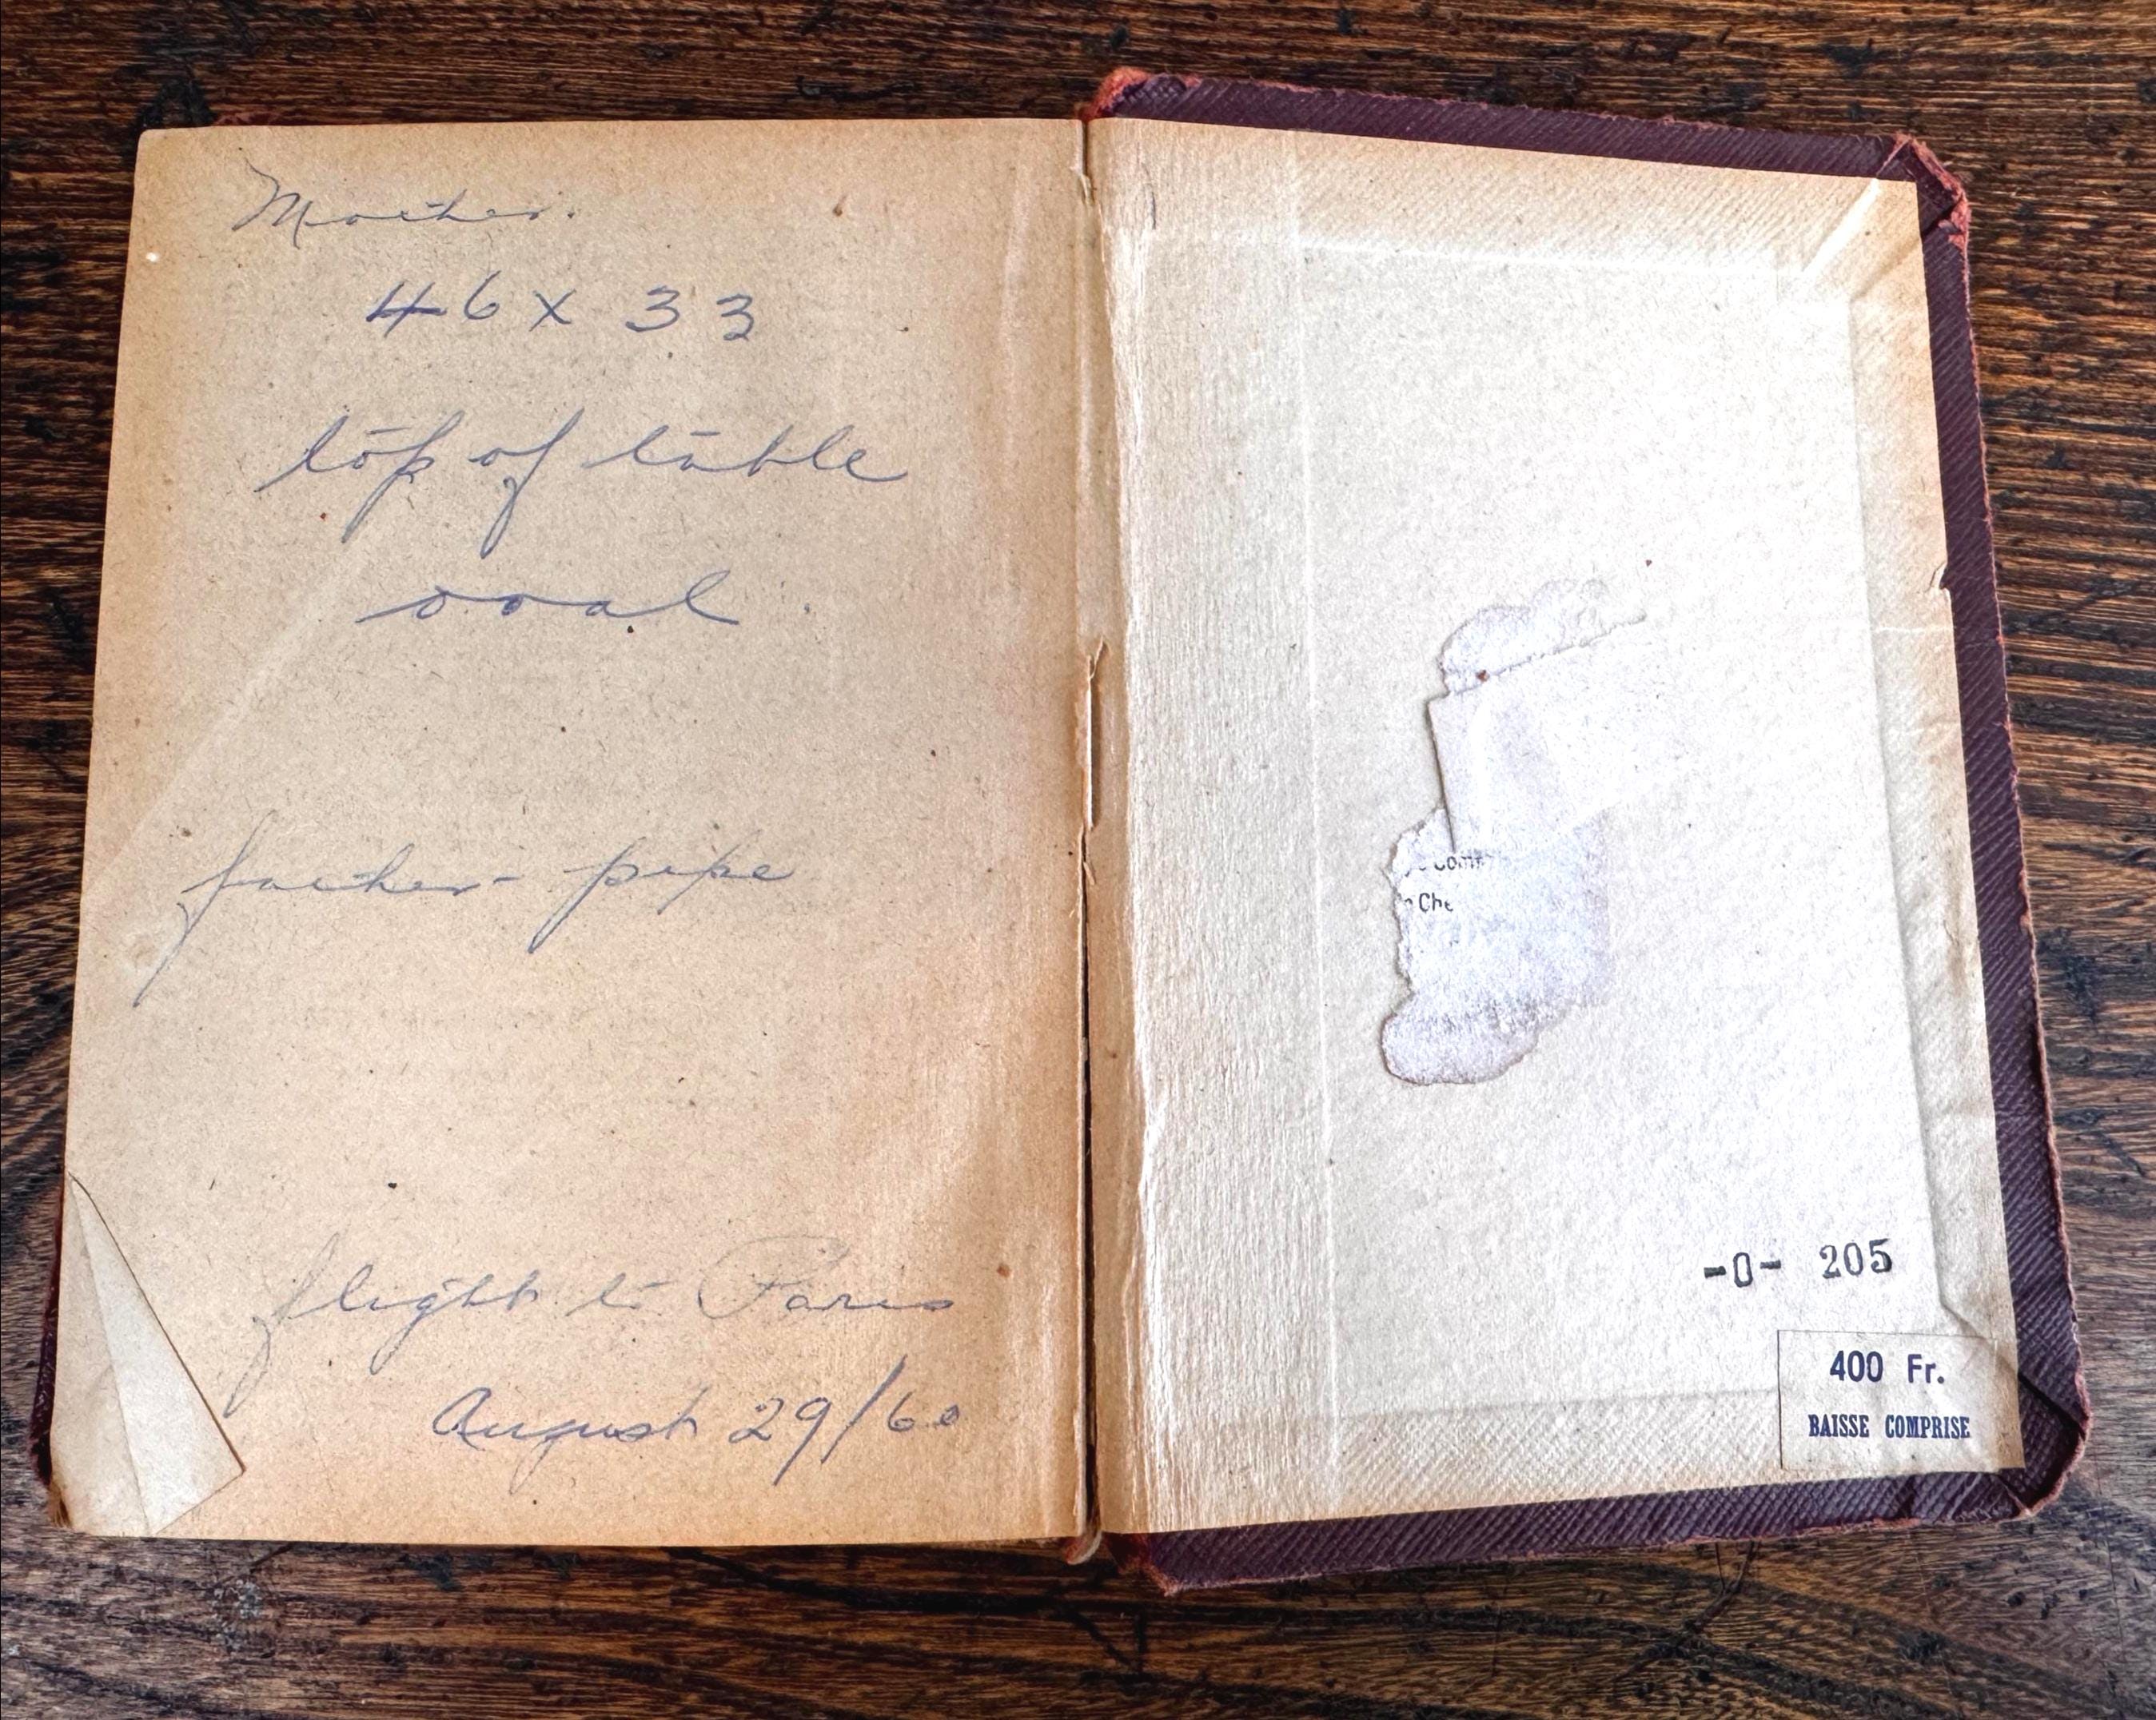 Mother.
46 x 33
top of table
oval.
father - pipe
flight to Paris
August 29/60
Che
-0- 205
400 Fr.
BAISSE COMPRISE